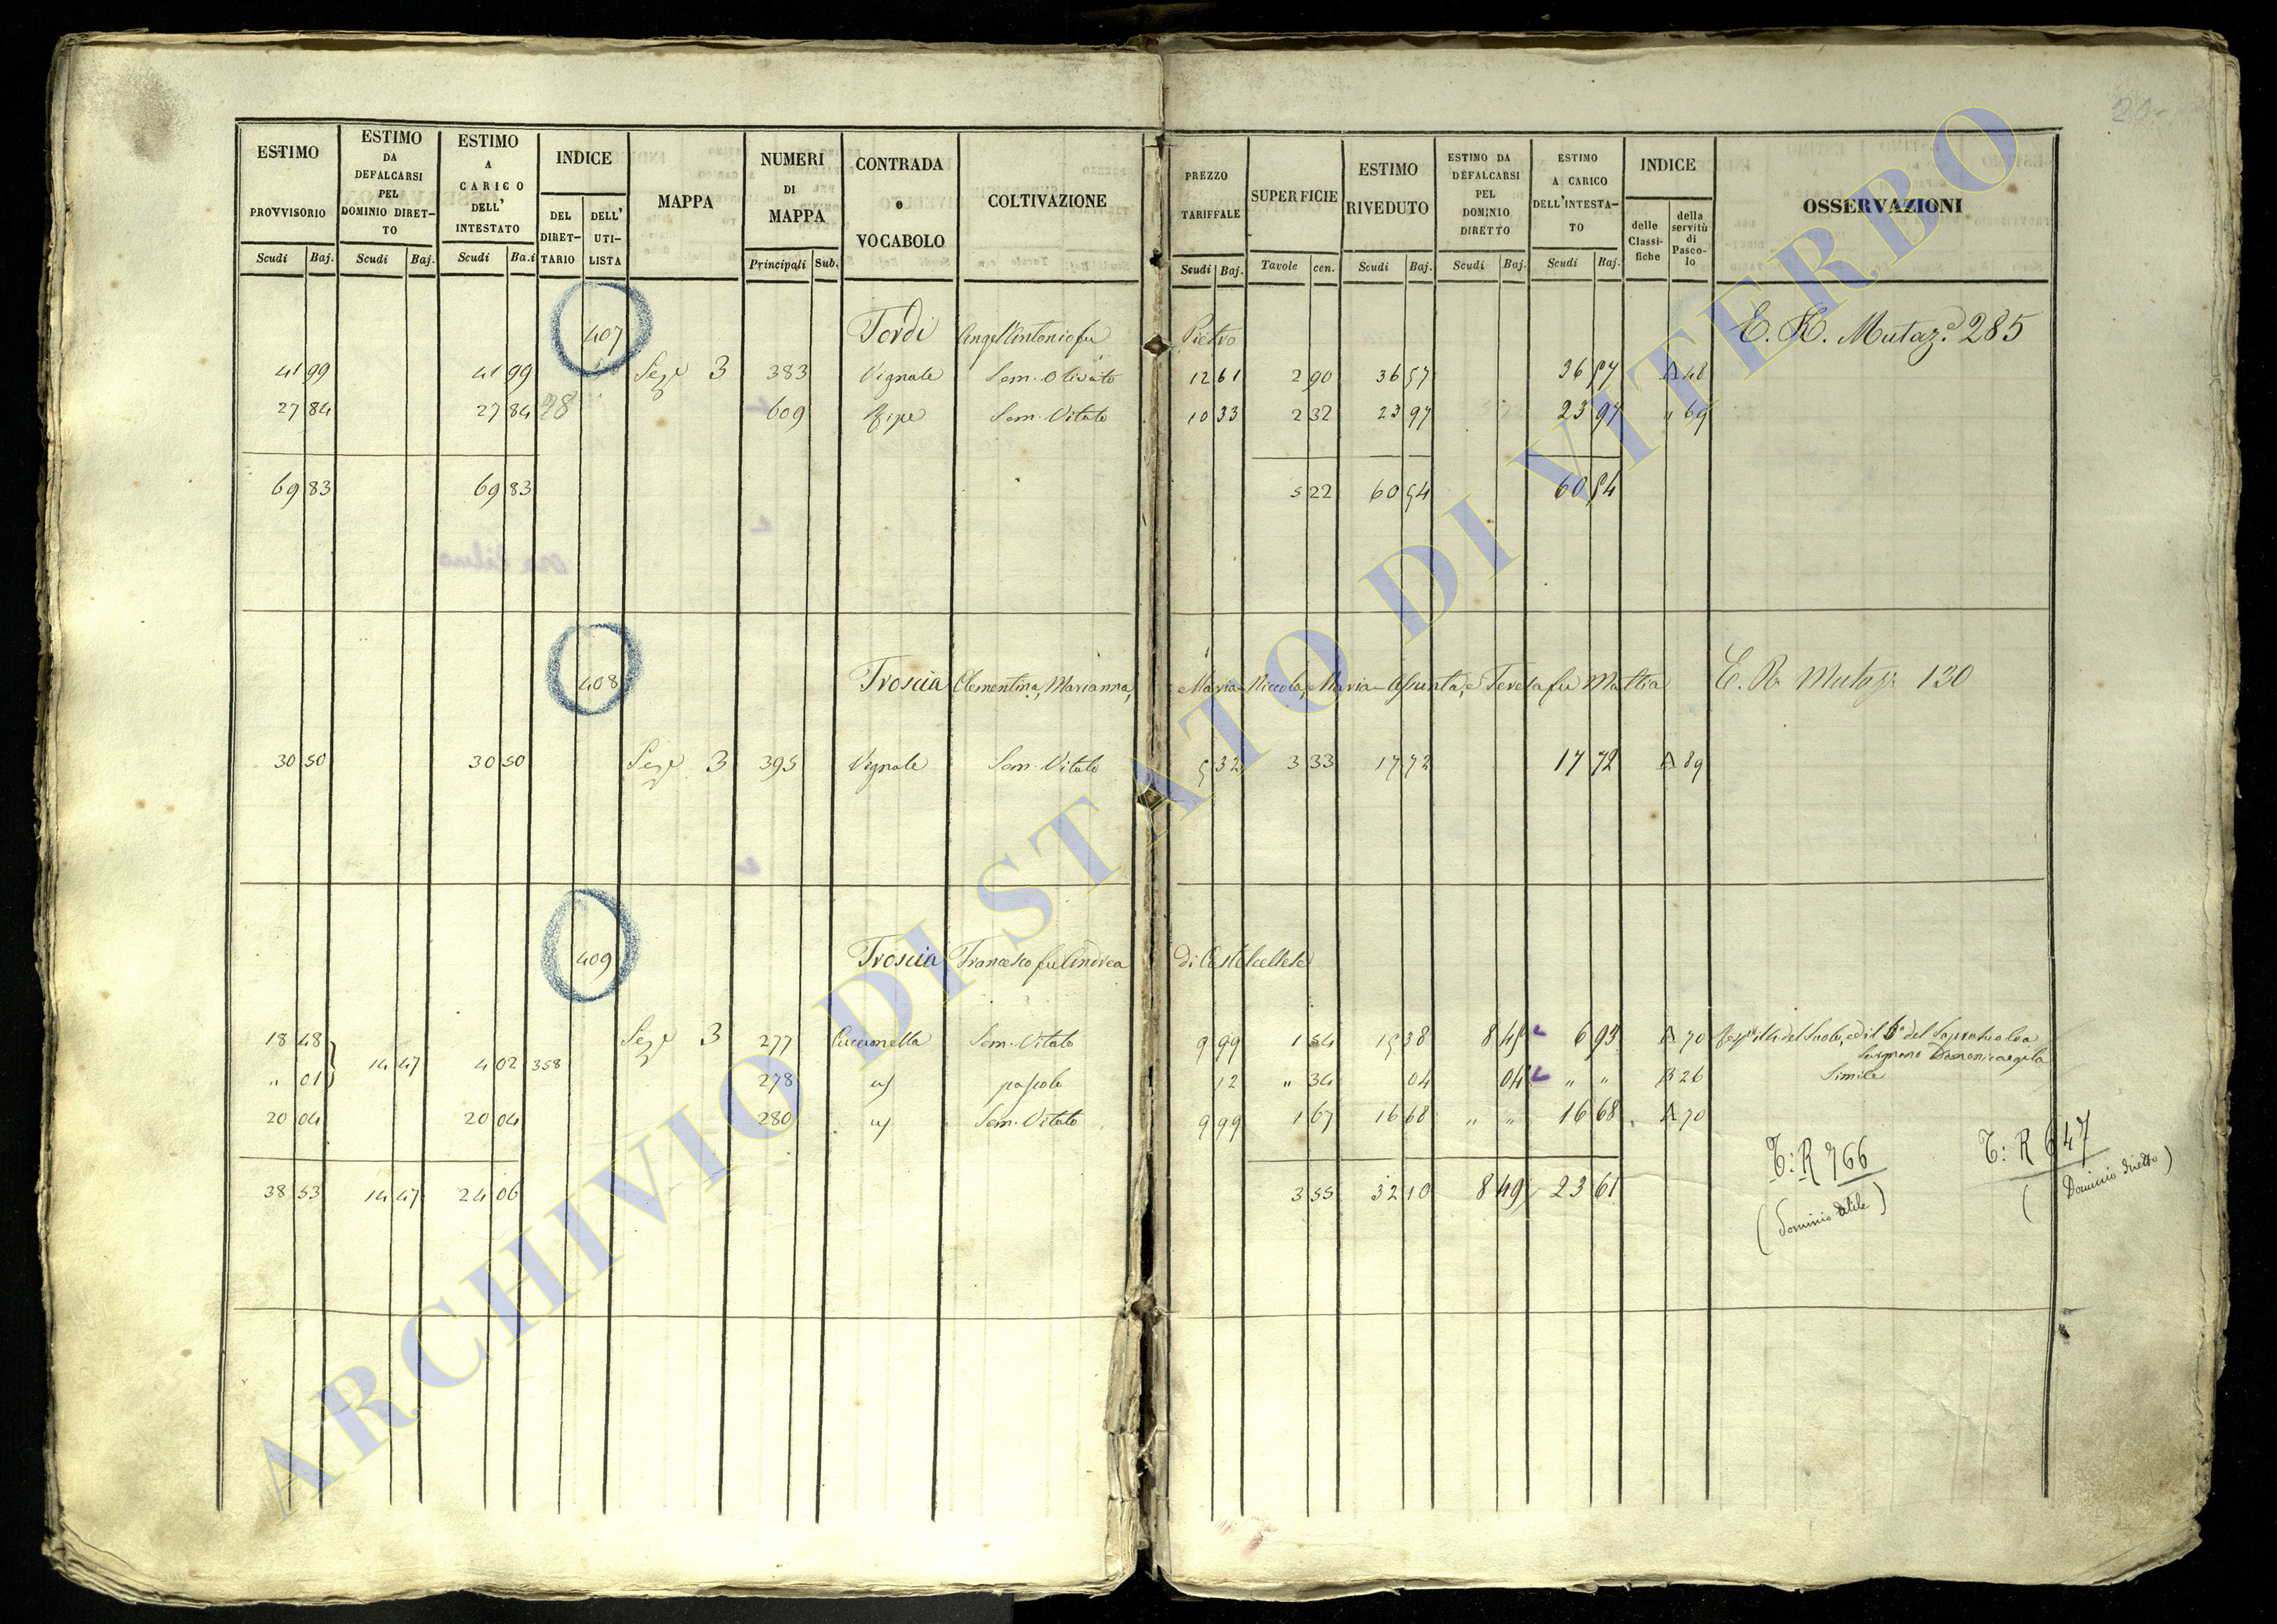 20
ESTIMO PROVVISORIO Scudi Baj.
ESTIMO DA DEFALCARSI PEL DOMINIO DIRETTO Scudi Baj.
ESTIMO A CARICO DELL' INTESTATO Scudi Ba.i
INDICE DEL DIRET-TARIO DELL' UTI-LISTA
MAPPA
NUMERI DI MAPPA Principali Sub.
CONTRADA o VOCABOLO
COLTIVAZIONE
PREZZO TARIFFALE Scudi Baj.
SUPERFICIE Tavole cen.
ESTIMO RIVEDUTO Scudi Baj.
ESTIMO DA DEFALCARSI PEL DOMINIO DIRETTO Scudi Baj.
ESTIMO A CARICO DELL'INTESTA-TO Scudi Baj.
INDICE delle Classi-fiche della servitù di Pasco-lo
OSSERVAZIONI
407 Tordi Angel'Antonio fu Pietro E. R. Mutaz. 285
41 99 41 99 Sez. 3 383 Vignale Sem. Olivato 12 61 2 90 36 57 36 57 A 48
27 84 27 84 78 609 Ripe Sem. Vitato 10 33 2 32 23 97 23 97 " 69
69 83 69 83 5 22 60 54 60 54
408 Troscia Clementina, Marianna, Maria-Niccola, Maria-Assunta, e Teresa fu Mattia E. R. Mutaz. 130
30 50 30 50 Sez. 3 395 Vignale Sem. Vitato 5 32 3 33 17 72 17 72 A 89
409 Troscia Francesco fu Andrea di Castelcellese
18 48 Sez. 3 277 Cuccionella Sem. Vitato 9 99 1 54 15 38 8 45 6 93 A 70 del Suolo, ed il
14 47 4 02 358
" 01 278 id pascolo 12 " 34 04 04 " " B 26 Simile
20 04 20 04 280 id Sem. Vitato 9 99 1 67 16 68 " " 16 68 A 70
38 53 14 47 24 06 3 55 32 10 8 49 23 61
T: R 766
(Dominio utile)
T: R 647
(Dominio diretto)
ARCHIVIO DI STATO DI VITERBO